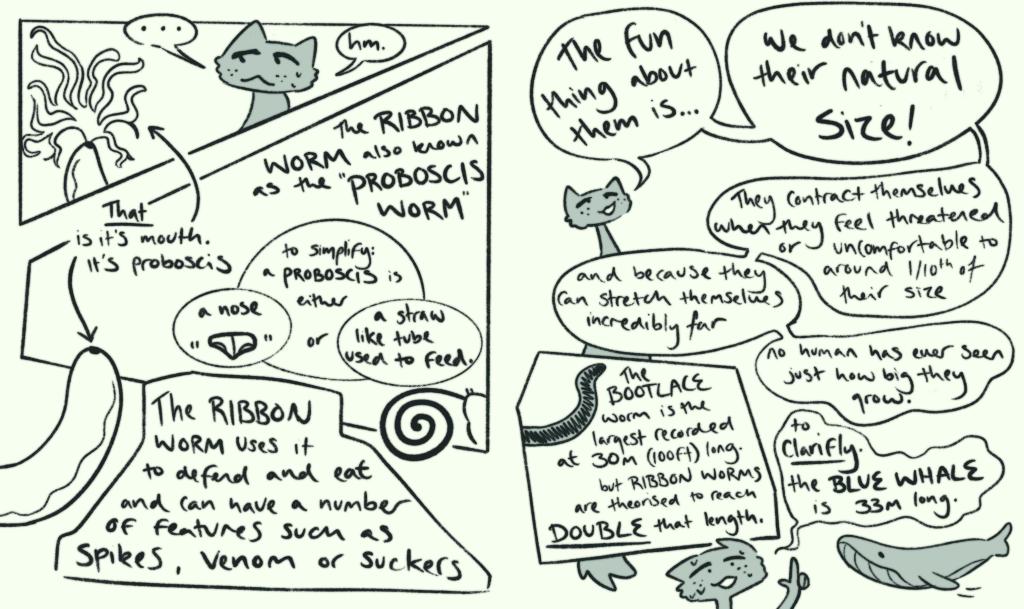 ...
hm.
The RIBBON
WORM also known
as the "PROBOSCIS
WORM"
That
is it's mouth.
It's proboscis
to simplify:
a PROBOSCIS is
either
a nose
" "
or
a straw
like tube
used to feed.
The RIBBON
WORM uses it
to defend and eat
and can have a number
of features such as
Spikes, Venom or suckers
The fun
thing about
them is...
We don't know
their natural
Size!
They contract themselves
when they feel threatened
or uncomfortable to
around 1/10th of
their size
and because they
can stretch themselves
incredibly far
no human has ever seen
just how big they
grow.
The
BOOTLACE
worm is the
largest recorded
at 30m (100ft) long.
but RIBBON WORMS
are theorised to reach
DOUBLE that length.
to
Clarifly.
the BLUE WHALE
is 33m long.